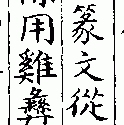 篆文從
用雞彝